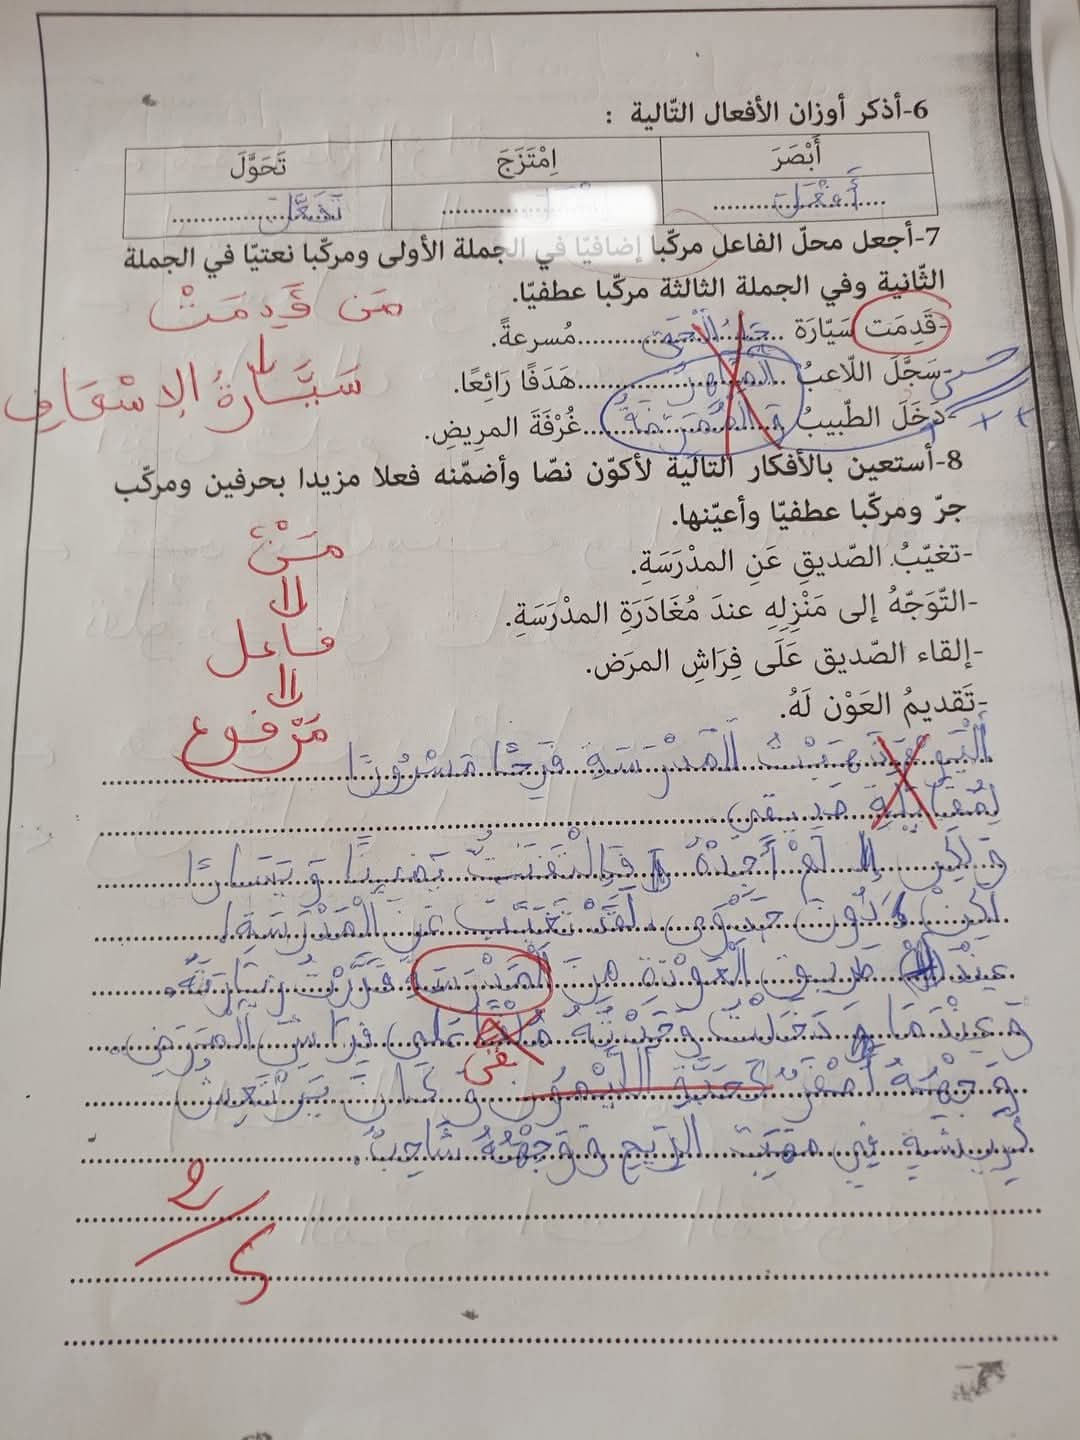 6-أذكر أوزان الأفعال التّالية :
أَبْصَرَ اِمْتَزَجَ تَحَوَّلَ
أَفْعَلَ تَفَعَّلَ
7-أجعل محلّ الفاعل مركّبا إضافيّا في الجملة الأولى ومركّبا نعتيّا في الجملة
الثّانية وفي الجملة الثالثة مركّبا عطفيّا.
مَن قَدِمَتْ
-قَدِمَت سَيّارَة ................ مُسرعةً.
سَيَّارَةُ الإسْعَافِ
-سَجَّلَ اللّاعبُ المَاهِرُ ................ هَدَفًا رَائِعًا.
-دَخَلَ الطّبيبُ وَالمُمَرِّضَةُ ................ غُرْفَةَ المرِيضِ.
8-أستعين بالأفكار التالية لأكوّن نصّا وأضمّنه فعلا مزيدا بحرفين ومركّب
جرّ ومركّبا عطفيّا وأعيّنها.
مَنْ
-تغيّبُ الصّديقِ عَنِ المدْرَسَةِ.
-التّوَجّهُ إلى مَنْزِلِهِ عندَ مُغَادَرَةِ المدْرَسَةِ.
فاعل
-إلقاء الصّديق عَلَى فِرَاشِ المرَض.
-تَقديمُ العَوْن لَهُ.
مَرْفوع
الْيَوْمَ ذَهَبْتُ الْمَدْرَسَةِ فَرِحًا مَسْرُورًا
لِمُقَابَلَةِ صَدِيقِي
وَلَكِن لَمْ أَجِدْهُ فَالْتَفَتُّ يَمِينًا وَ يَسَارًا
لَكِنْ دُونَ جَدْوَى لَقَدْ تَغَيَّبَ عَنِ الْمَدْرَسَةِ!
عِنْدَ طَرِيقِ الْعَوْدَةِ مِنَ الْمَدْرَسَةِ قَرَّرْتُ زِيَارَتَهُ.
وَ عِنْدَمَا دَخَلْتُ وَجَدْتُهُ عَلَى فِرَاشِ الْمَرَضِ.
قى
وَجْهُهُ أَصْفَرُ كَحَبَّةِ اللَّيْمُونِ وَ كَانَ يَرْتَعِشُ
كَرِيشَةٍ فِي مَهَبِّ الرِّيحِ وَ وَجْهُهُ شَاحِبٌ.
2/5